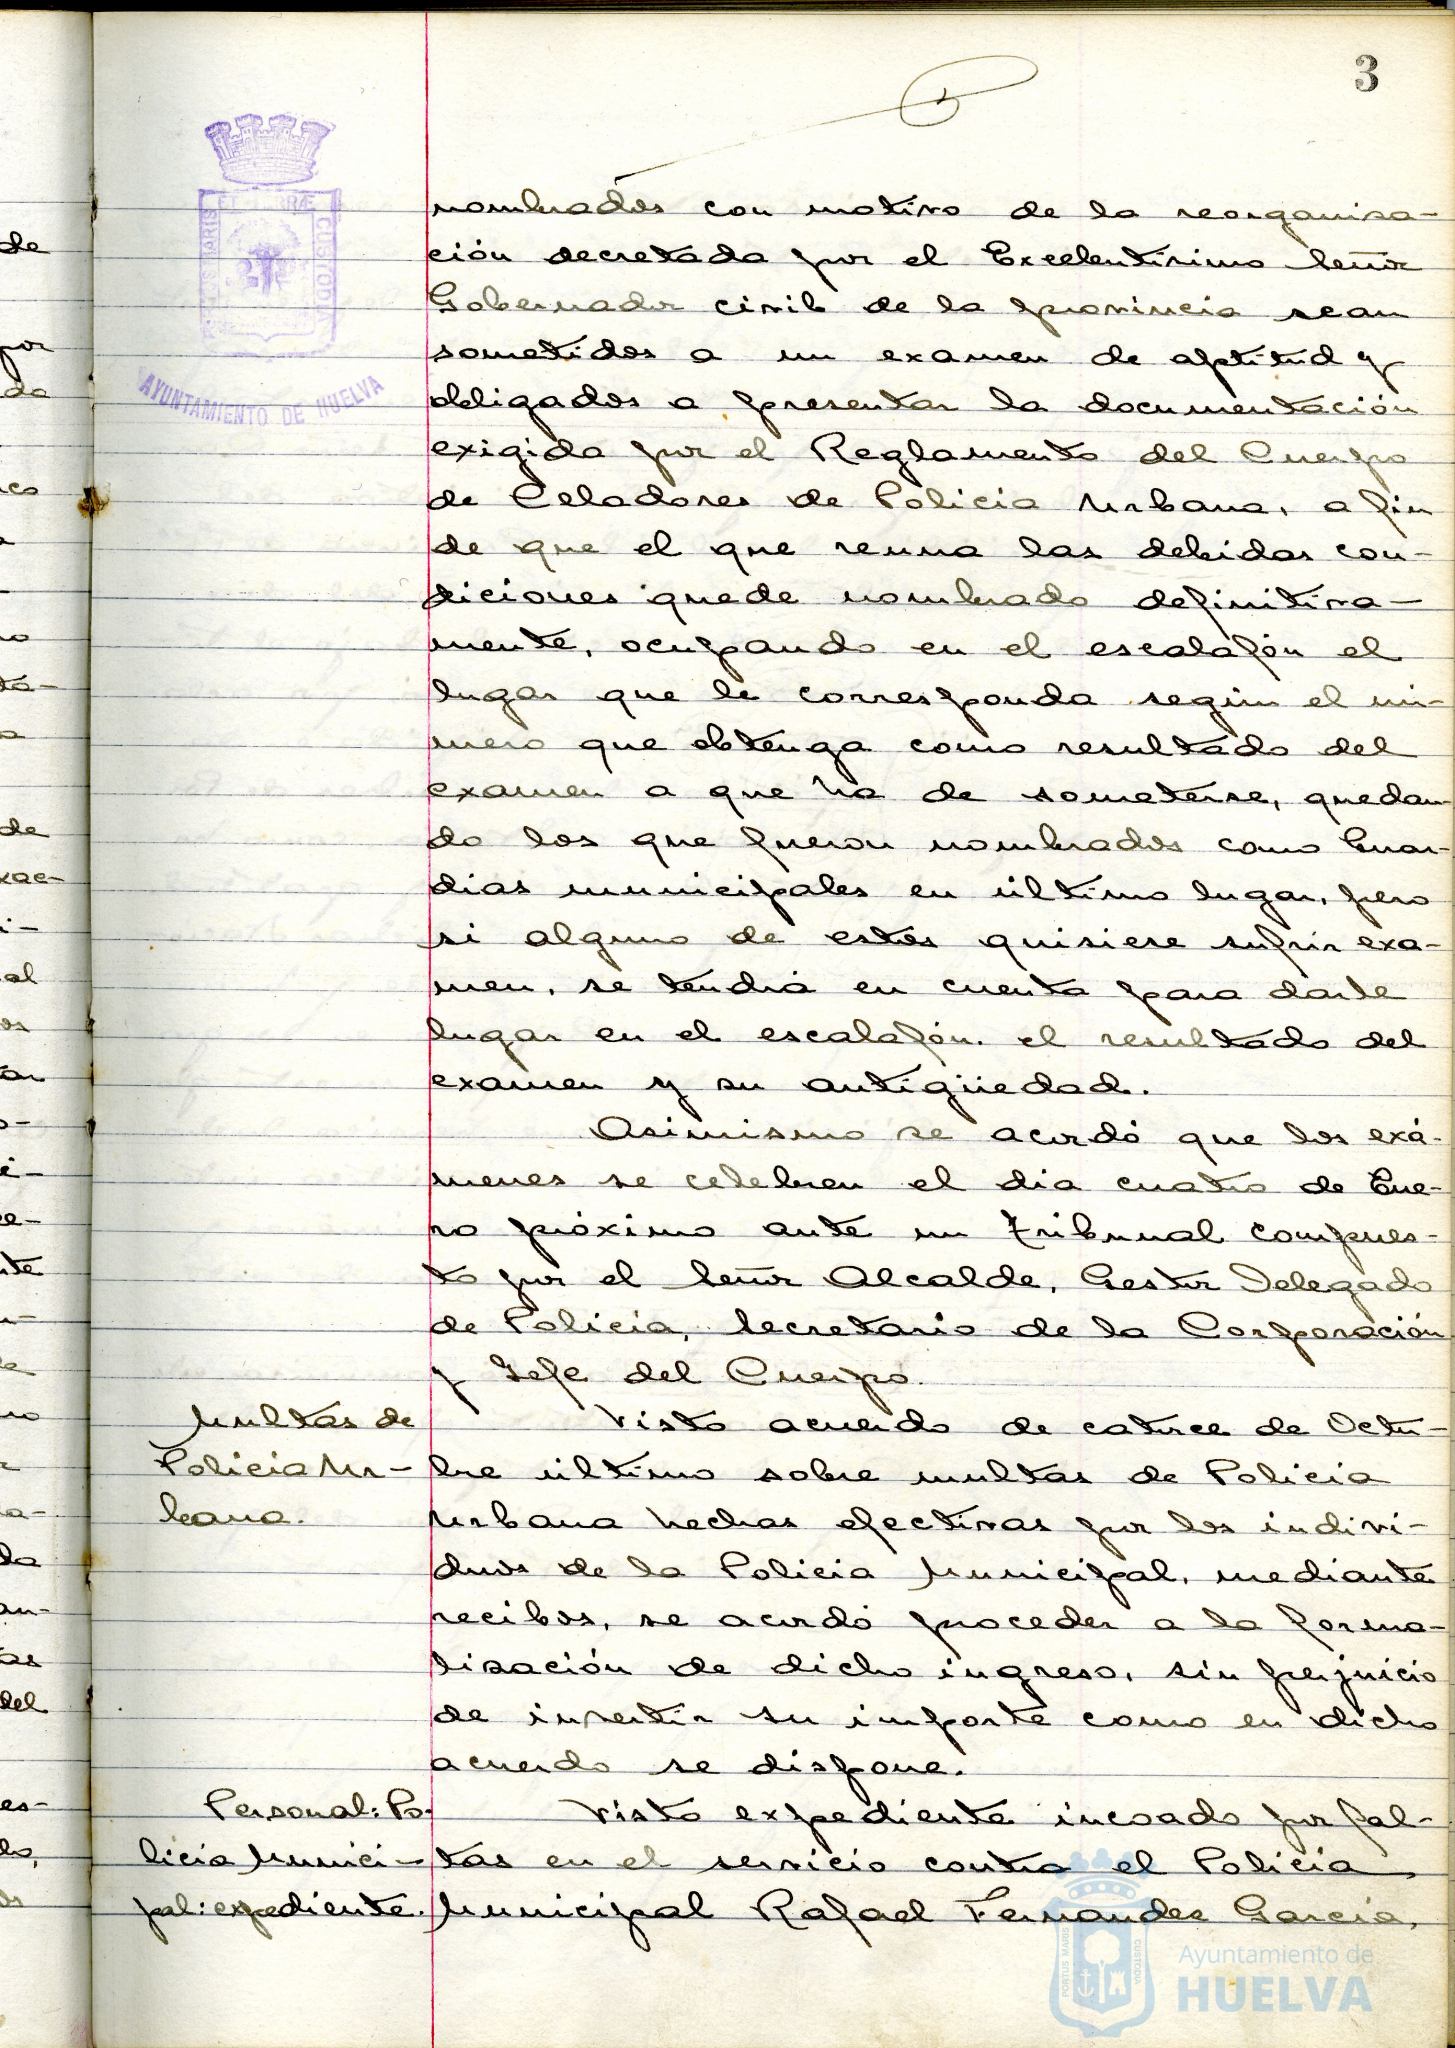 3
nombrados con motivo de la reorganiza-
ción decretada por el Excelentísimo Señor
Gobernador civil de la provincia sean
sometidos a un examen de aptitud y
obligados a presentar la documentación
exigida por el Reglamento del Cuerpo
de Celadores de Policia Urbana, a fin
de que el que reuna las debidas con-
diciones quede nombrado definitiva-
mente, ocupando en el escalafón el
lugar que le corresponda según el nú-
mero que obtenga como resultado del
examen a que ha de someterse, quedan-
do los que fueron nombrados como Guar-
dias municipales en último lugar, pero
si alguno de estos quisiere sufrir exa-
men, se tendrá en cuenta para darle
lugar en el escalafón el resultado del
examen y su antigüedad.
Asimismo se acordó que los exá-
menes se celebren el dia cuatro de Ene-
ro próximo ante un tribunal compues-
to por el Señor Alcalde, Gestor Delegado
de Policia, Secretario de la Corporación
y Jefe del Cuerpo.
Multas de
Policia Ur-
bana.
Visto acuerdo de catorce de Octu-
bre último sobre multas de Policia
Urbana hechas efectivas por los indivi-
duos de la Policia Municipal, mediante
recibos, se acordó proceder a la forma-
lización de dicho ingreso, sin perjuicio
de invertir su importe como en dicho
acuerdo se dispone.
Personal: Po-
licia Munici-
pal: expediente.
Visto expediente incoado por fal-
tas en el servicio contra el Policia
Municipal Rafael Fernandez Garcia,
AYUNTAMIENTO DE HUELVA
Ayuntamiento de
HUELVA